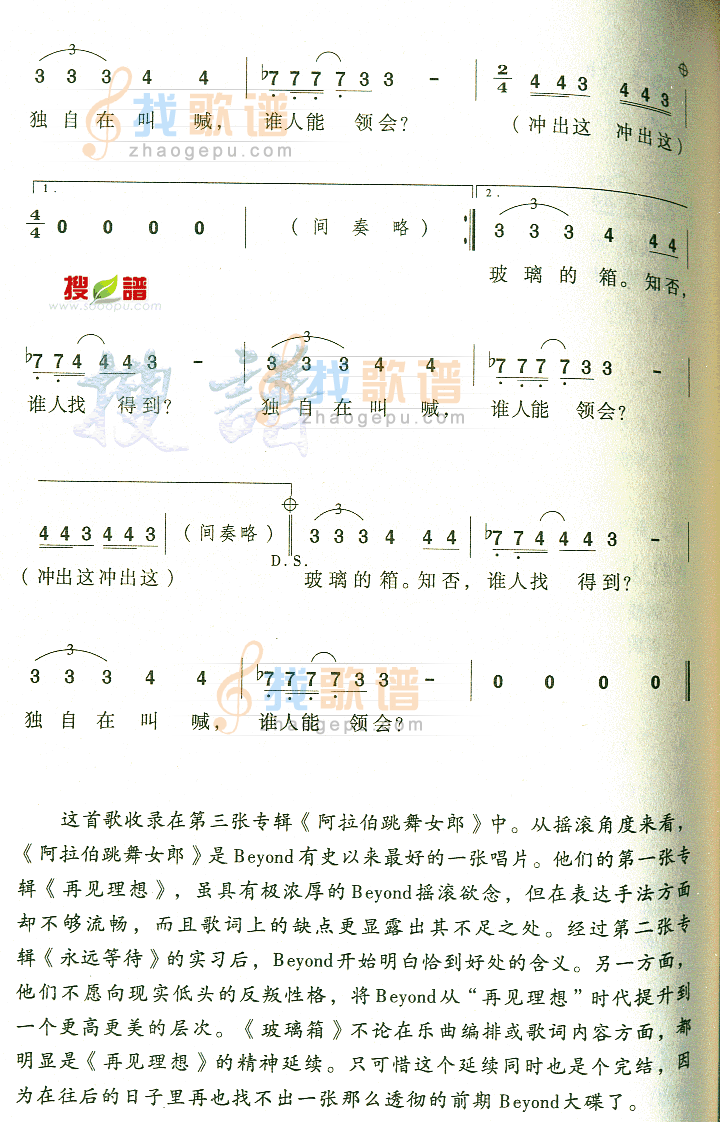 3
3 3 3 4 4 ♭7 7 7 7 3 3 – 2/4 4 4 3 4 4 3
独自在叫 喊，谁人能 领会？ （冲出这 冲出这）
找歌谱
zhaogepu.com
1. 2.
3
4/4 0 0 0 0 （间奏略） 3 3 3 4 4 4
玻璃的箱。知否，
搜譜
www.sooopu.com
3
♭7 7 4 4 4 3 – 3 3 3 4 4 ♭7 7 7 7 3 3 –
谁人找 得到？ 独自在叫 喊，谁人能 领会？
搜譜
找歌谱
zhaogepu.com
3
4 4 3 4 4 3 （间奏略） 3 3 3 4 4 4 ♭7 7 4 4 4 3 –
D.S.
（冲出这冲出这） 玻璃的箱。知否，谁人找 得到？
3
3 3 3 4 4 ♭7 7 7 7 3 3 – 0 0 0 0
找歌谱
zhaogepu.com
独自在叫 喊，谁人能 领会？
这首歌收录在第三张专辑《阿拉伯跳舞女郎》中。从摇滚角度来看，
《阿拉伯跳舞女郎》是Beyond有史以来最好的一张唱片。他们的第一张专
辑《再见理想》，虽具有极浓厚的Beyond摇滚欲念，但在表达手法方面
却不够流畅，而且歌词上的缺点更显露出其不足之处。经过第二张专
辑《永远等待》的实习后，Beyond开始明白恰到好处的含义。另一方面，
他们不愿向现实低头的反叛性格，将Beyond从“再见理想”时代提升到
一个更高更美的层次。《玻璃箱》不论在乐曲编排或歌词内容方面，都
明显是《再见理想》的精神延续。只可惜这个延续同时也是个完结，因
为在往后的日子里再也找不出一张那么透彻的前期Beyond大碟了。